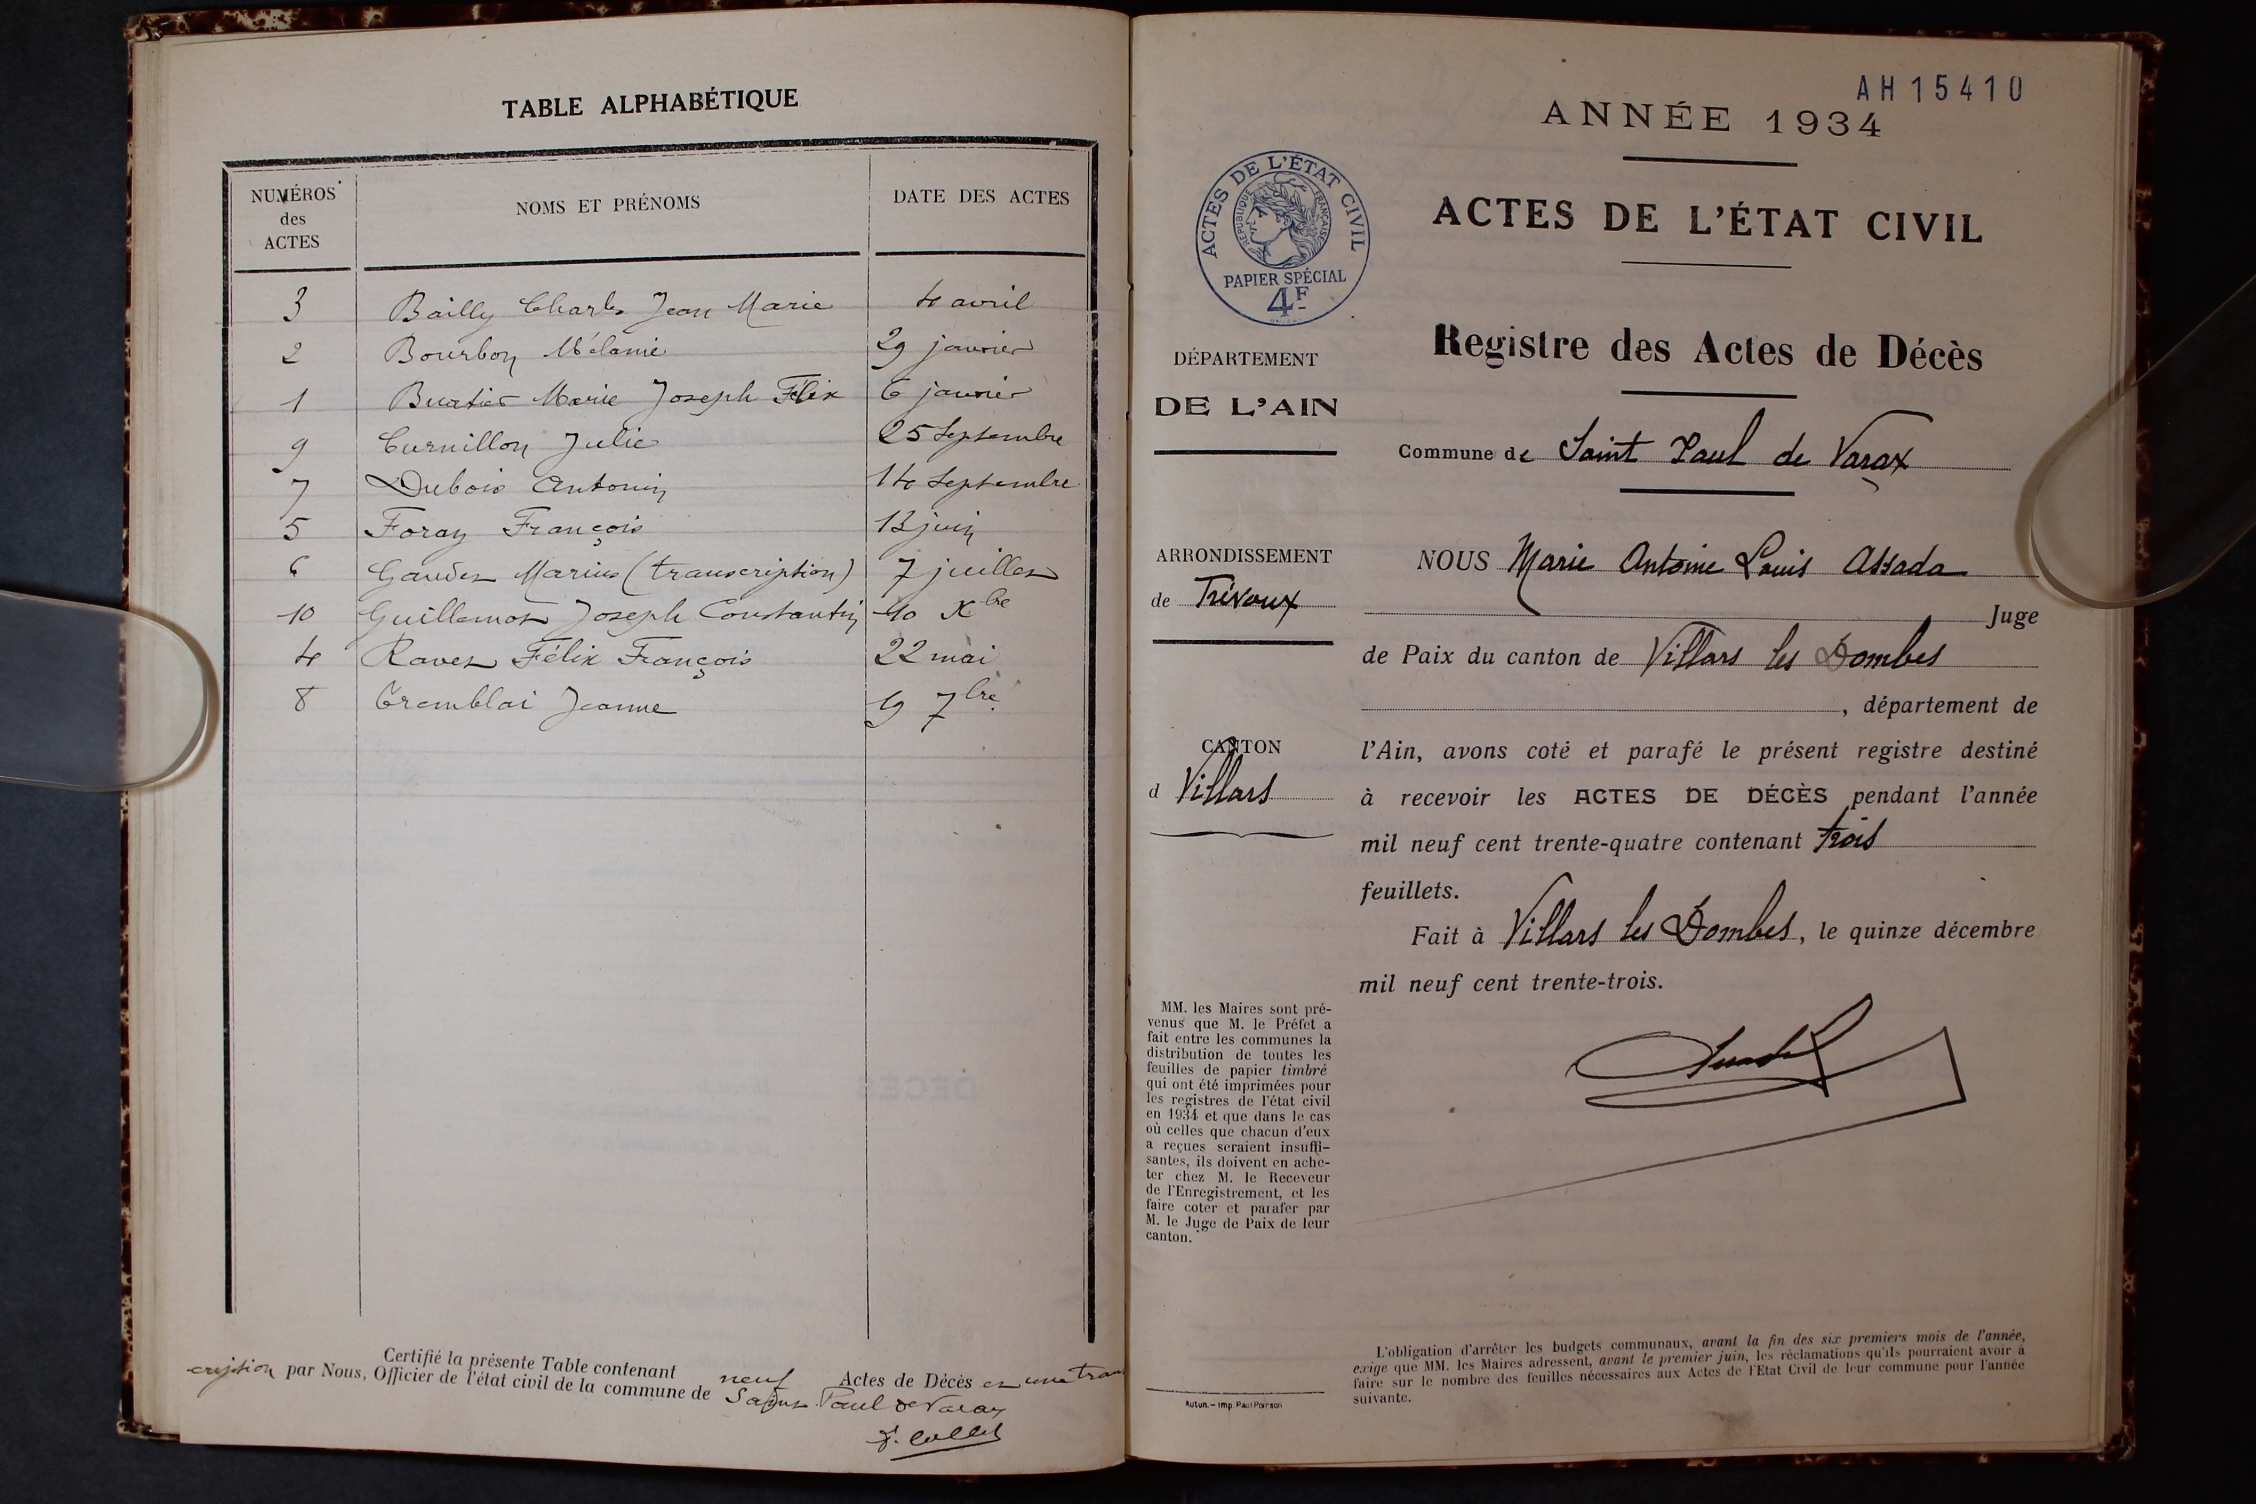 TABLE ALPHABÉTIQUE
NUMÉROS
des
ACTES
NOMS ET PRÉNOMS
DATE DES ACTES
3 Bailly Charles Jean Marie 4 avril
2 Bourbon Mélanie 29 janvier
1 Buatier Marie Joseph Félix 6 janvier
9 Curnillon Julie 25 Septembre
7 Dubois Antonin 14 Septembre
5 Foray François 13 juin
6 Gaudet Marius (transcription) 7 juillet
10 Guillemot Joseph Constantin 10 Xbre
4 Ravet Félix François 22 mai
8 Tremblai Jeanne 19 7bre
Certifié la présente Table contenant neuf Actes de Décès et une trans
cription par Nous, Officier de l'état civil de la commune de Saint Paul de Varax
F. Collet
AH15410
ANNÉE 1934
ACTES DE L'ÉTAT CIVIL
RÉPUBLIQUE FRANÇAISE
PAPIER SPÉCIAL
4F
ACTES DE L'ÉTAT CIVIL
Registre des Actes de Décès
DÉPARTEMENT
DE L'AIN
Commune de Saint Paul de Varax
ARRONDISSEMENT
de Trévoux
CANTON
d Villars
NOUS Marie Antoine Louis Assada
Juge
de Paix du canton de Villars les Dombes
, département de
l'Ain, avons coté et parafé le présent registre destiné
à recevoir les ACTES DE DÉCÈS pendant l'année
mil neuf cent trente-quatre contenant trois
feuillets.
Fait à Villars les Dombes, le quinze décembre
mil neuf cent trente-trois.
MM. les Maires sont pré-
venus que M. le Préfet a
fait entre les communes la
distribution de toutes les
feuilles de papier timbré
qui ont été imprimées pour
les registres de l'état civil
en 1934 et que dans le cas
où celles que chacun d'eux
a reçues seraient insuffi-
santes, ils doivent en ache-
ter chez M. le Receveur
de l'Enregistrement, et les
faire coter et parafer par
M. le Juge de Paix de leur
canton.
Autun. – Imp. Paul Poirson
L'obligation d'arrêter les budgets communaux, avant la fin des six premiers mois de l'année,
exige que MM. les Maires adressent, avant le premier juin, les réclamations qu'ils pourraient avoir à
faire sur le nombre des feuilles nécessaires aux Actes de l'Etat Civil de leur commune pour l'année
suivante.